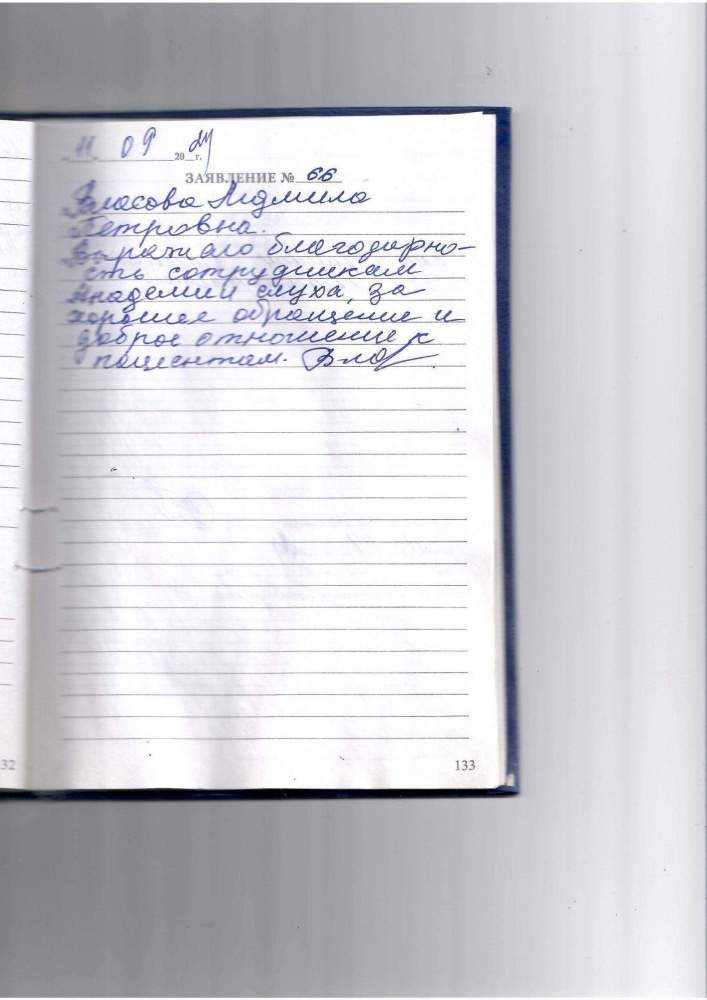 11 09 2024 г.
ЗАЯВЛЕНИЕ № 66
Власова Людмила
Петровна.
Выражаю благодарно-
сть сотрудникам
Академии слуха, за
хорошее обращение и
доброе отношение к
пациентам. Вла
32
133